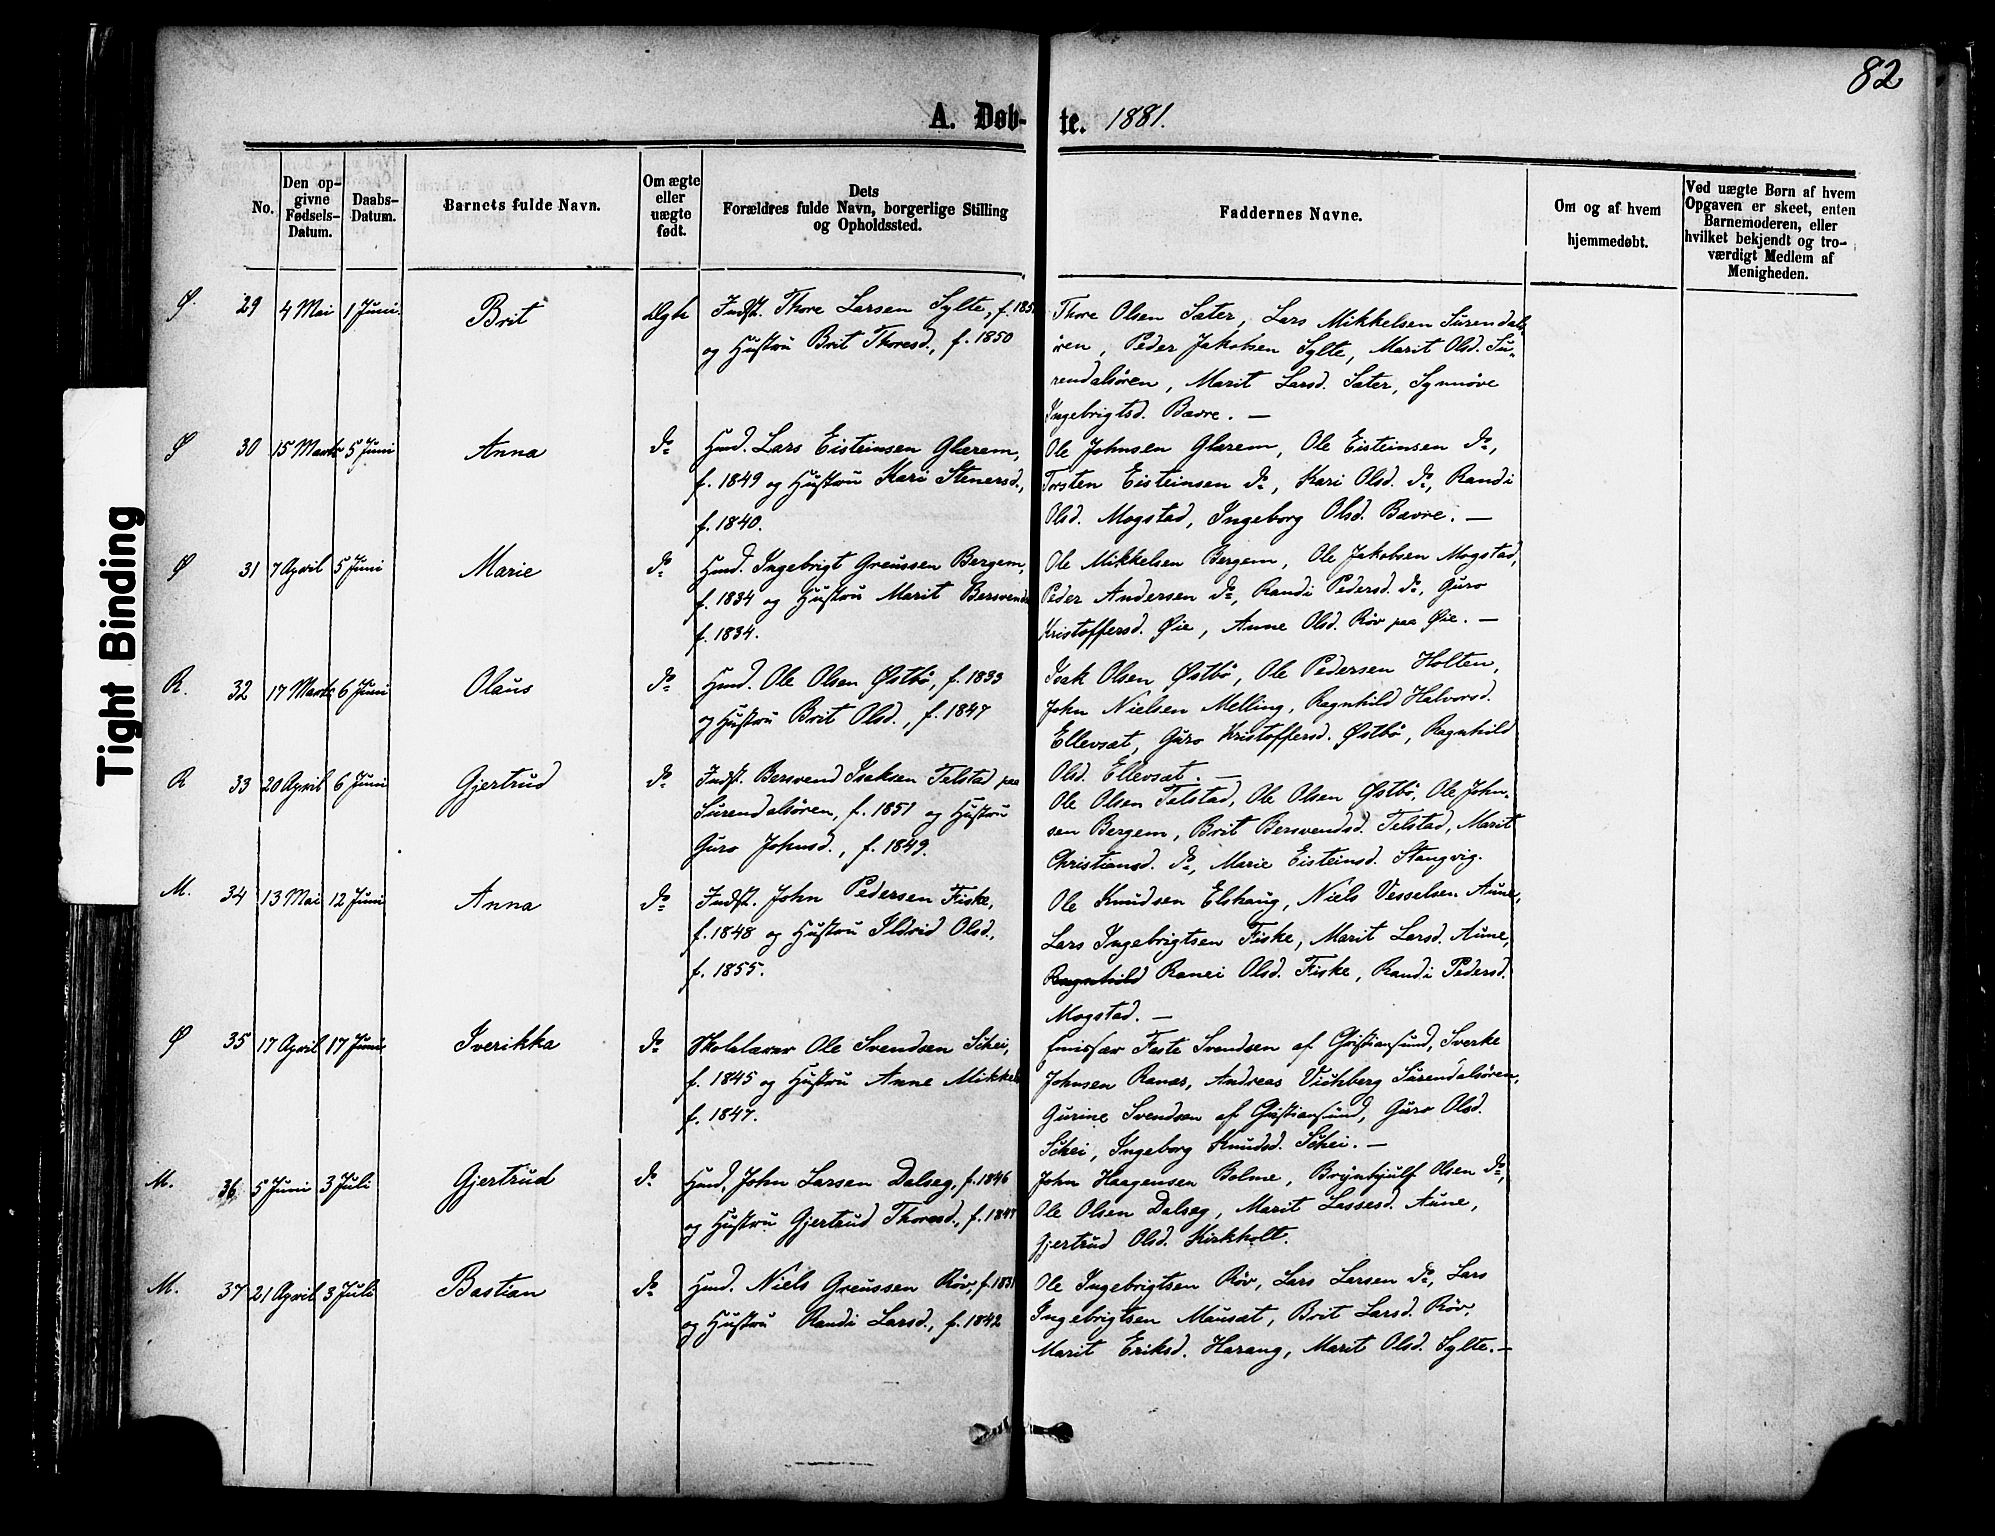 82
A. Døb-te. 1881.
Tight Binding
No.
Den op-
givne
Fødsels-
Datum.
Daabs-
Datum.
Barnets fulde Navn.
Om ægte
eller
uægte
født.
Dets
Forældres fulde Navn, borgerlige Stilling
og Opholdssted.
Faddernes Navne.
Om og af hvem
hjemmedøbt.
Ved uægte Børn af hvem
Opgaven er skeet, enten
Barnemoderen, eller
hvilket bekjendt og tro-
værdigt Medlem af
Menigheden.
Ø. 29 4 Mai 1 Juni Brit ægte
Indst. Thore Larsen Sylte, f. 185
og Hustru Brit Thoresd., f. 1850
Thore Olsen Sater, Lars Mikkelsen Surendals-
ören, Peder Jakobsen Sylte, Marit Olsd. Su-
rendalsören, Marit Larsd. Sater, Synnöve
Ingebrigtsd. Bævre. —
Ø 30 15 Marts 5 Juni Anna do
Gmd. Lars Eisteinsen Glærem,
f. 1849 og Hustru Kari Stenersd.,
f. 1840.
Ole Johnsen Glærem, Ole Eisteinsen do,
Torsten Eisteinsen do, Kari Olsd. do, Randi
Olsd. Mogstad, Ingeborg Olsd. Bævre. —
Ø 31 7 April 5 Juni Marie do
Gmd. Ingebrigt Greussen Bergem,
f. 1834 og Hustru Marit Bersvends
f. 1834.
Ole Mikkelsen Bergem, Ole Jakobsen Mogstad,
Peder Andersen do, Randi Pedersd. do, Guro
Kristoffersd. Øie, Anne Olsd. Röv paa Øie. —
R. 32 17 Marts 6 Juni Olaus do
Gmd. Ole Olsen Østbö, f. 1833
og Hustru Brit Olsd., f. 1847
Isak Olsen Østbö, Ole Pedersen Holten,
John Nielsen Melling, Ragnhild Halvorsd.
Ellevsæt, Guro Kristoffersd. Østbö, Ragnhild
Olsd. Ellevsæt. —
R 33 20 April 6 Juni Gjertrud do
Indst. Bersvend Isaksen Telstad paa
Surendalsören, f. 1851 og Hustru
Guro Johnsd., f. 1849.
Ole Olsen Telstad, Ole Olsen Østbö, Ole John-
sen Bergem, Brit Bersvendsd. Telstad, Marit
Christiansd. do, Marie Eisteinsd. Stangvig.
M. 34 13 Mai 12 Juni Anna do
Indst. John Pedersen Fiske,
f. 1848 og Hustru Ildrid Olsd.,
f. 1855.
Ole Knudsen Elshaug, Niels Vesselsen Aune,
Lars Ingebrigtsen Fiske, Marit Larsd. Aune,
Ragnhild Ranei Olsd. Fiske, Randi Pedersd.
Mogstad. —
Ø 35 17 April 17 Juni Iverikka do
Skolelærer Ole Svendsen Schei,
f. 1845 og Hustru Anne Mikkels
f. 1847.
Emissær Faste Svendsen af Christiansund, Sverke
Johnsen Ranæs, Andreas Vichberg Surendalsören,
Gurine Svendsen af Christiansund, Guro Olsd.
Schei, Ingeborg Knudsd. Schei. —
M. 36 5 Juni 3 Juli Gjertrud do
Gmd. John Larsen Dalsæg, f. 1846
og Hustru Gjertrud Thoresd., f. 1847
John Haagensen Bolme, Brynhjulf Olsen do,
Ole Olsen Dalsæg, Marit Lassesd. Aune,
Gjertrud Olsd. Kirkholt.
M. 37 21 April 3 Juli Bastian do
Gmd. Niels Greussen Röv, f. 1831
og Hustru Randi Larsd., f. 1842
Ole Ingebrigtsen Röv, Lars Larsen do, Lars
Ingebrigtsen Mausæt, Brit Larsd. Röv,
Marit Eriksd. Harang, Marit Olsd. Sylte. —